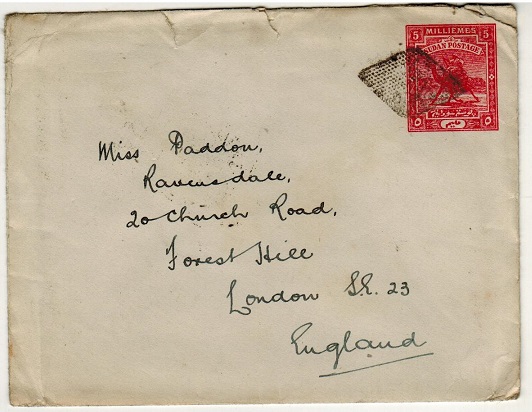 5 MILLIEMES 5
SUDAN POSTAGE
Miss Paddon,
Ravensdale,
20 Church Road,
Forest Hill
London S.E. 23
England